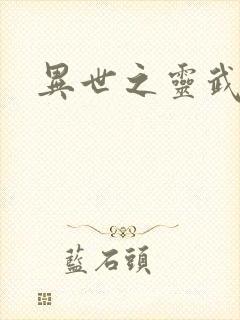 異世之靈武
藍石頭